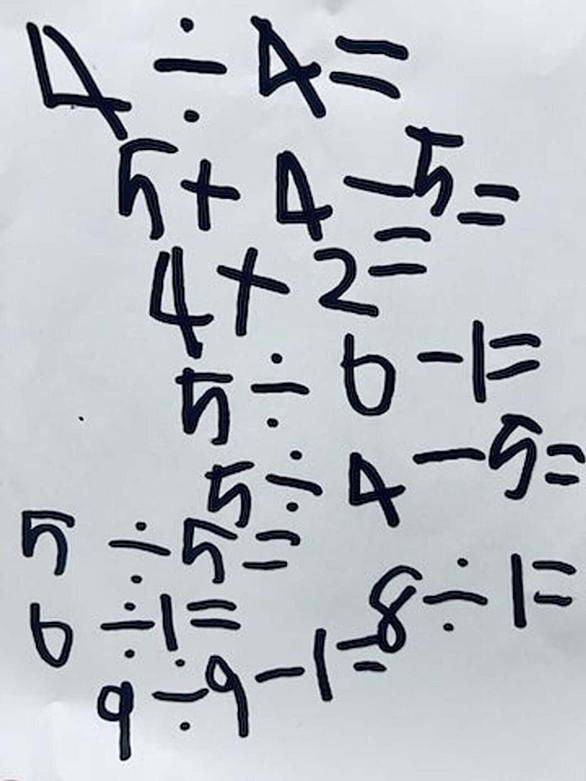 4÷4=
5+4-5=
4+2=
5÷6-1=
5÷4-5=
5÷5=
6÷1=
8÷1=
9÷9-1=